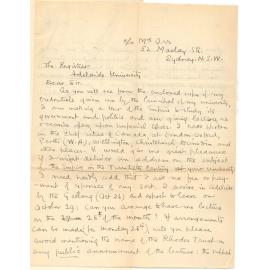 c/o Mrs Orr
52 Macleay St.
Sydney. N.S.W.
The Registrar
Adelaide University
Dear Sir.
As you will see from the enclosed copy of my
credentials given me by the Council of my University,
I am making a tour of the Empire to study its
government and politics and am giving lectures as
occasion offers upon imperial topics. I have spoken
in the chief cities of Canada, at London
Perth (W.A.), Wellington, Christchurch, Dunedin and
other places. It would give me great pleasure
if I might deliver an address on the subject
of the Empire in the Twentieth Century at your University.
I need hardly add that I ask no fee or pay-
-ment of expenses of any sort. I arrive in Adelaide
by the (Oct 26) and expect to leave on
October 29. Can you arrange to have me lecture
on the 28th of the month? If arrangements
can be made for Monday 28th, will you please
avoid mentioning the name of the Rhodes Trust in
any public announcement of the lecture: the